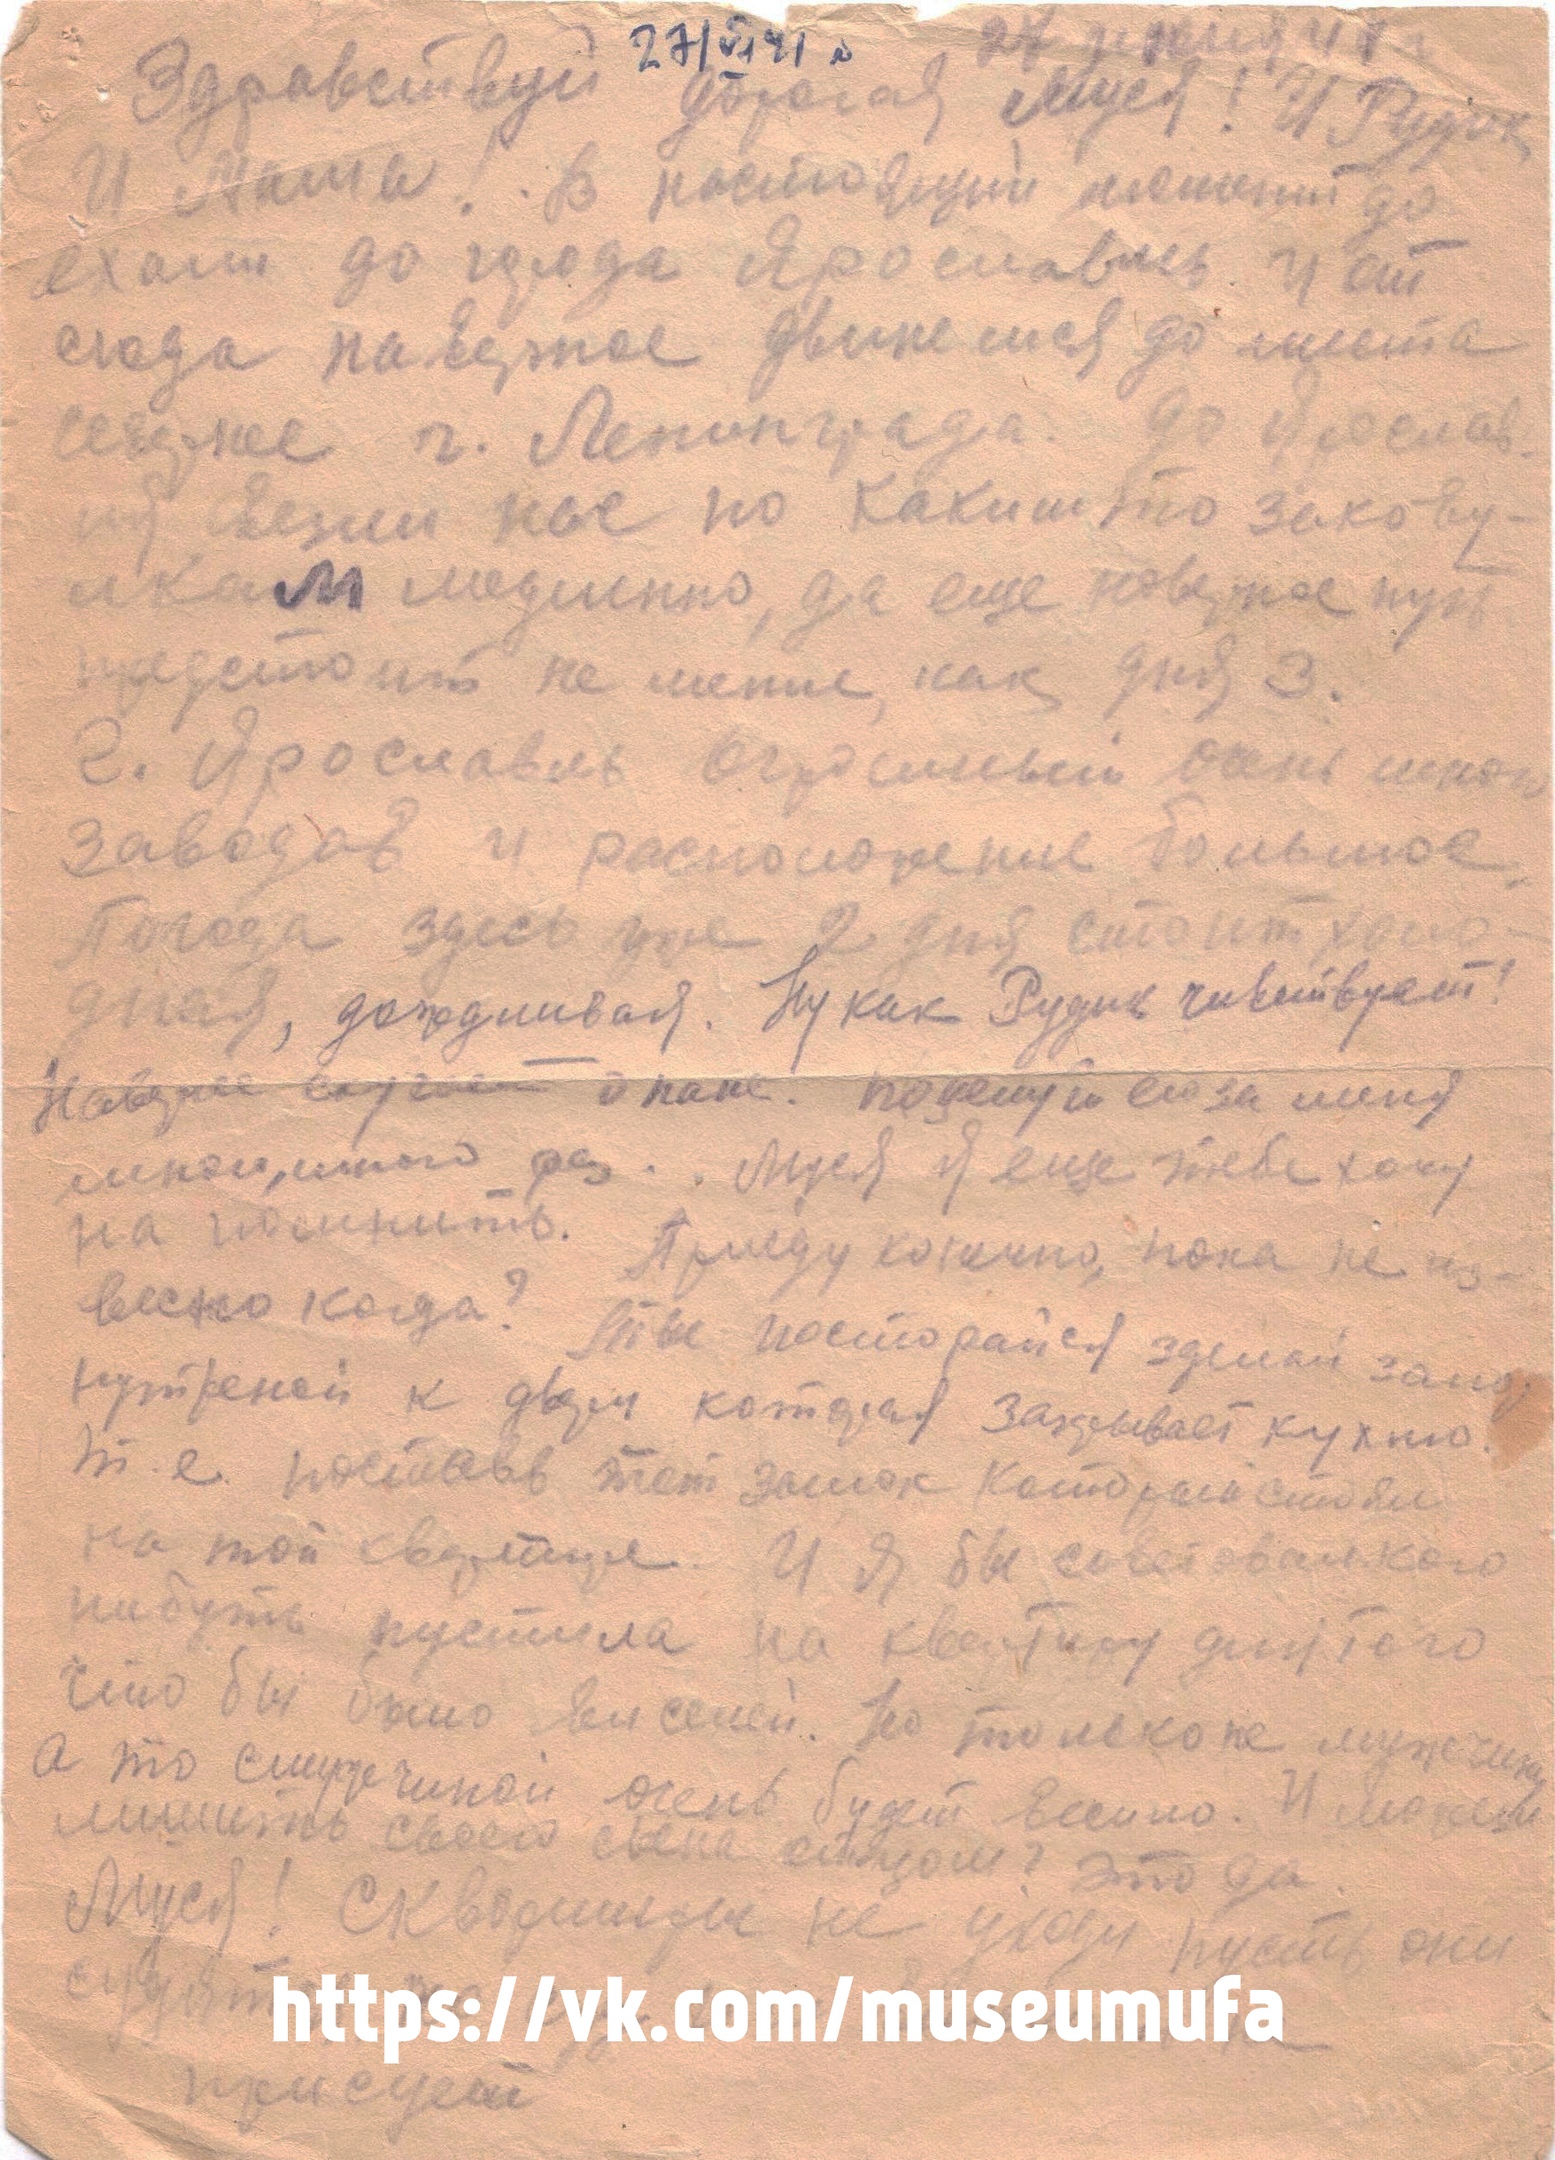 27/VI 41 г 27 июня 41 г
Здравствуй дорогая Муся! И Рудик
И Мама! В настоящий момент до
ехали до города Ярославль и от
сюда наверное двинемся до места
севернее г. Ленинграда. До Ярослав-
ля везли нас по каким то закову-
лкам медленно, да еще наверное путь
предстоит не менее, как дня 3.
г. Ярославль огромный очень много
заводов и расположение большое.
Погода здесь уже 2 дня стоит холо-
дная, дождливая. Ну как Рудик чивствует!
Наверное скучает о папе. поцелуй ево за меня
много, много раз. . Муся я еще тебе хочу
на помнить. Приеду конечно, пока не из-
весно когда? Ты постарайся зделай запор
нутреной к двери которая закрывает кухню.
т.е. поставь тот замок которай стоял
на той квартире. И я бы советовал кого
нибуть пустила на квартиру для того
что бы было веселей. Но только не мужчину
А то смужчиной очень будет весило. И можеш
лишить своего сына отцом? это да.
Муся! Скводиитры не уходи пусть они
сидят
присует
https://vk.com/museumufa